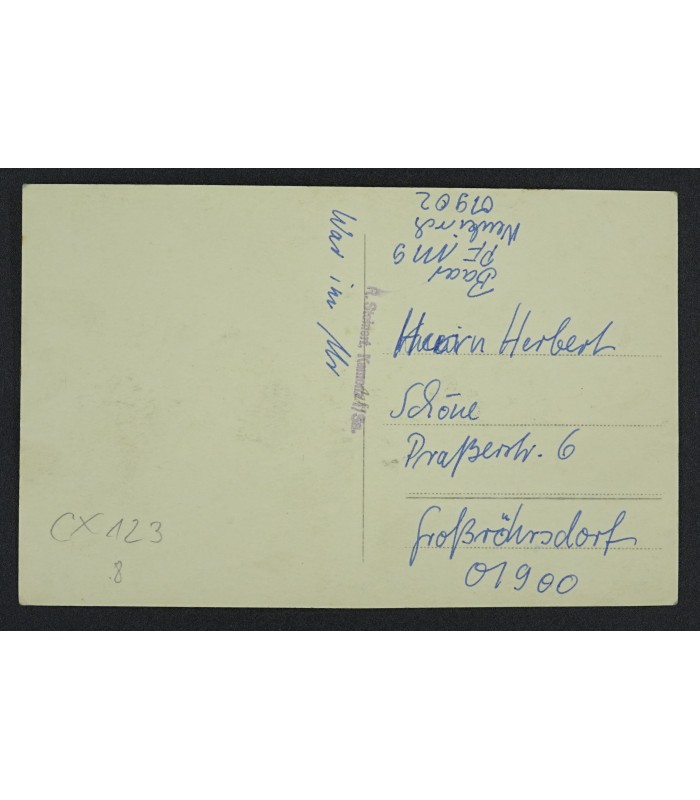 Baar
PF 1119
Neukirch
01902
War im Mr
Herrn Herbert
Schöne
Praßerstr. 6
Großröhrsdorf
01900
CX 123
8